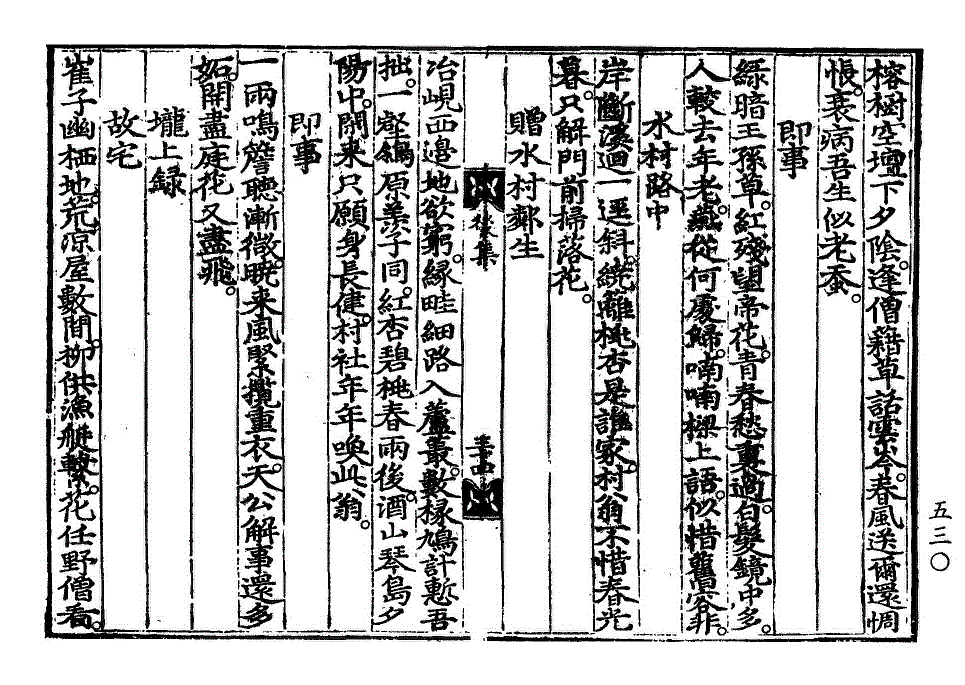 榕樹空壇下夕陰逢僧藉草話雲岑春風送爾還惆
悵衰病吾生似老蚕
即事
綠暗王孫草紅殘望帝花青春愁裏過白髮鏡中多
人較去年老燕從何處歸喃喃樑上語似惜舊容非
水村路中
岸斷溪迴一逕斜繞籬桃杏是誰家村翁不惜春光
暮只解門前掃落花
贈水村鄰生
冶峴西邊地欲窮緣畦細路入蘆叢數椽鳩計慙吾
拙一壑鵷原羨子同紅杏碧桃春雨後酒山琴島夕
陽中閑来只願身長健村社年年喚此翁
即事
一雨鳴簷聽漸微曉来風緊攬重衣天公解事還多
妬開盡庭花又盡飛
壠上錄
故宅
崔子幽栖地荒凉屋數間柳供漁艇繫花任野僧看
後集
五三〇